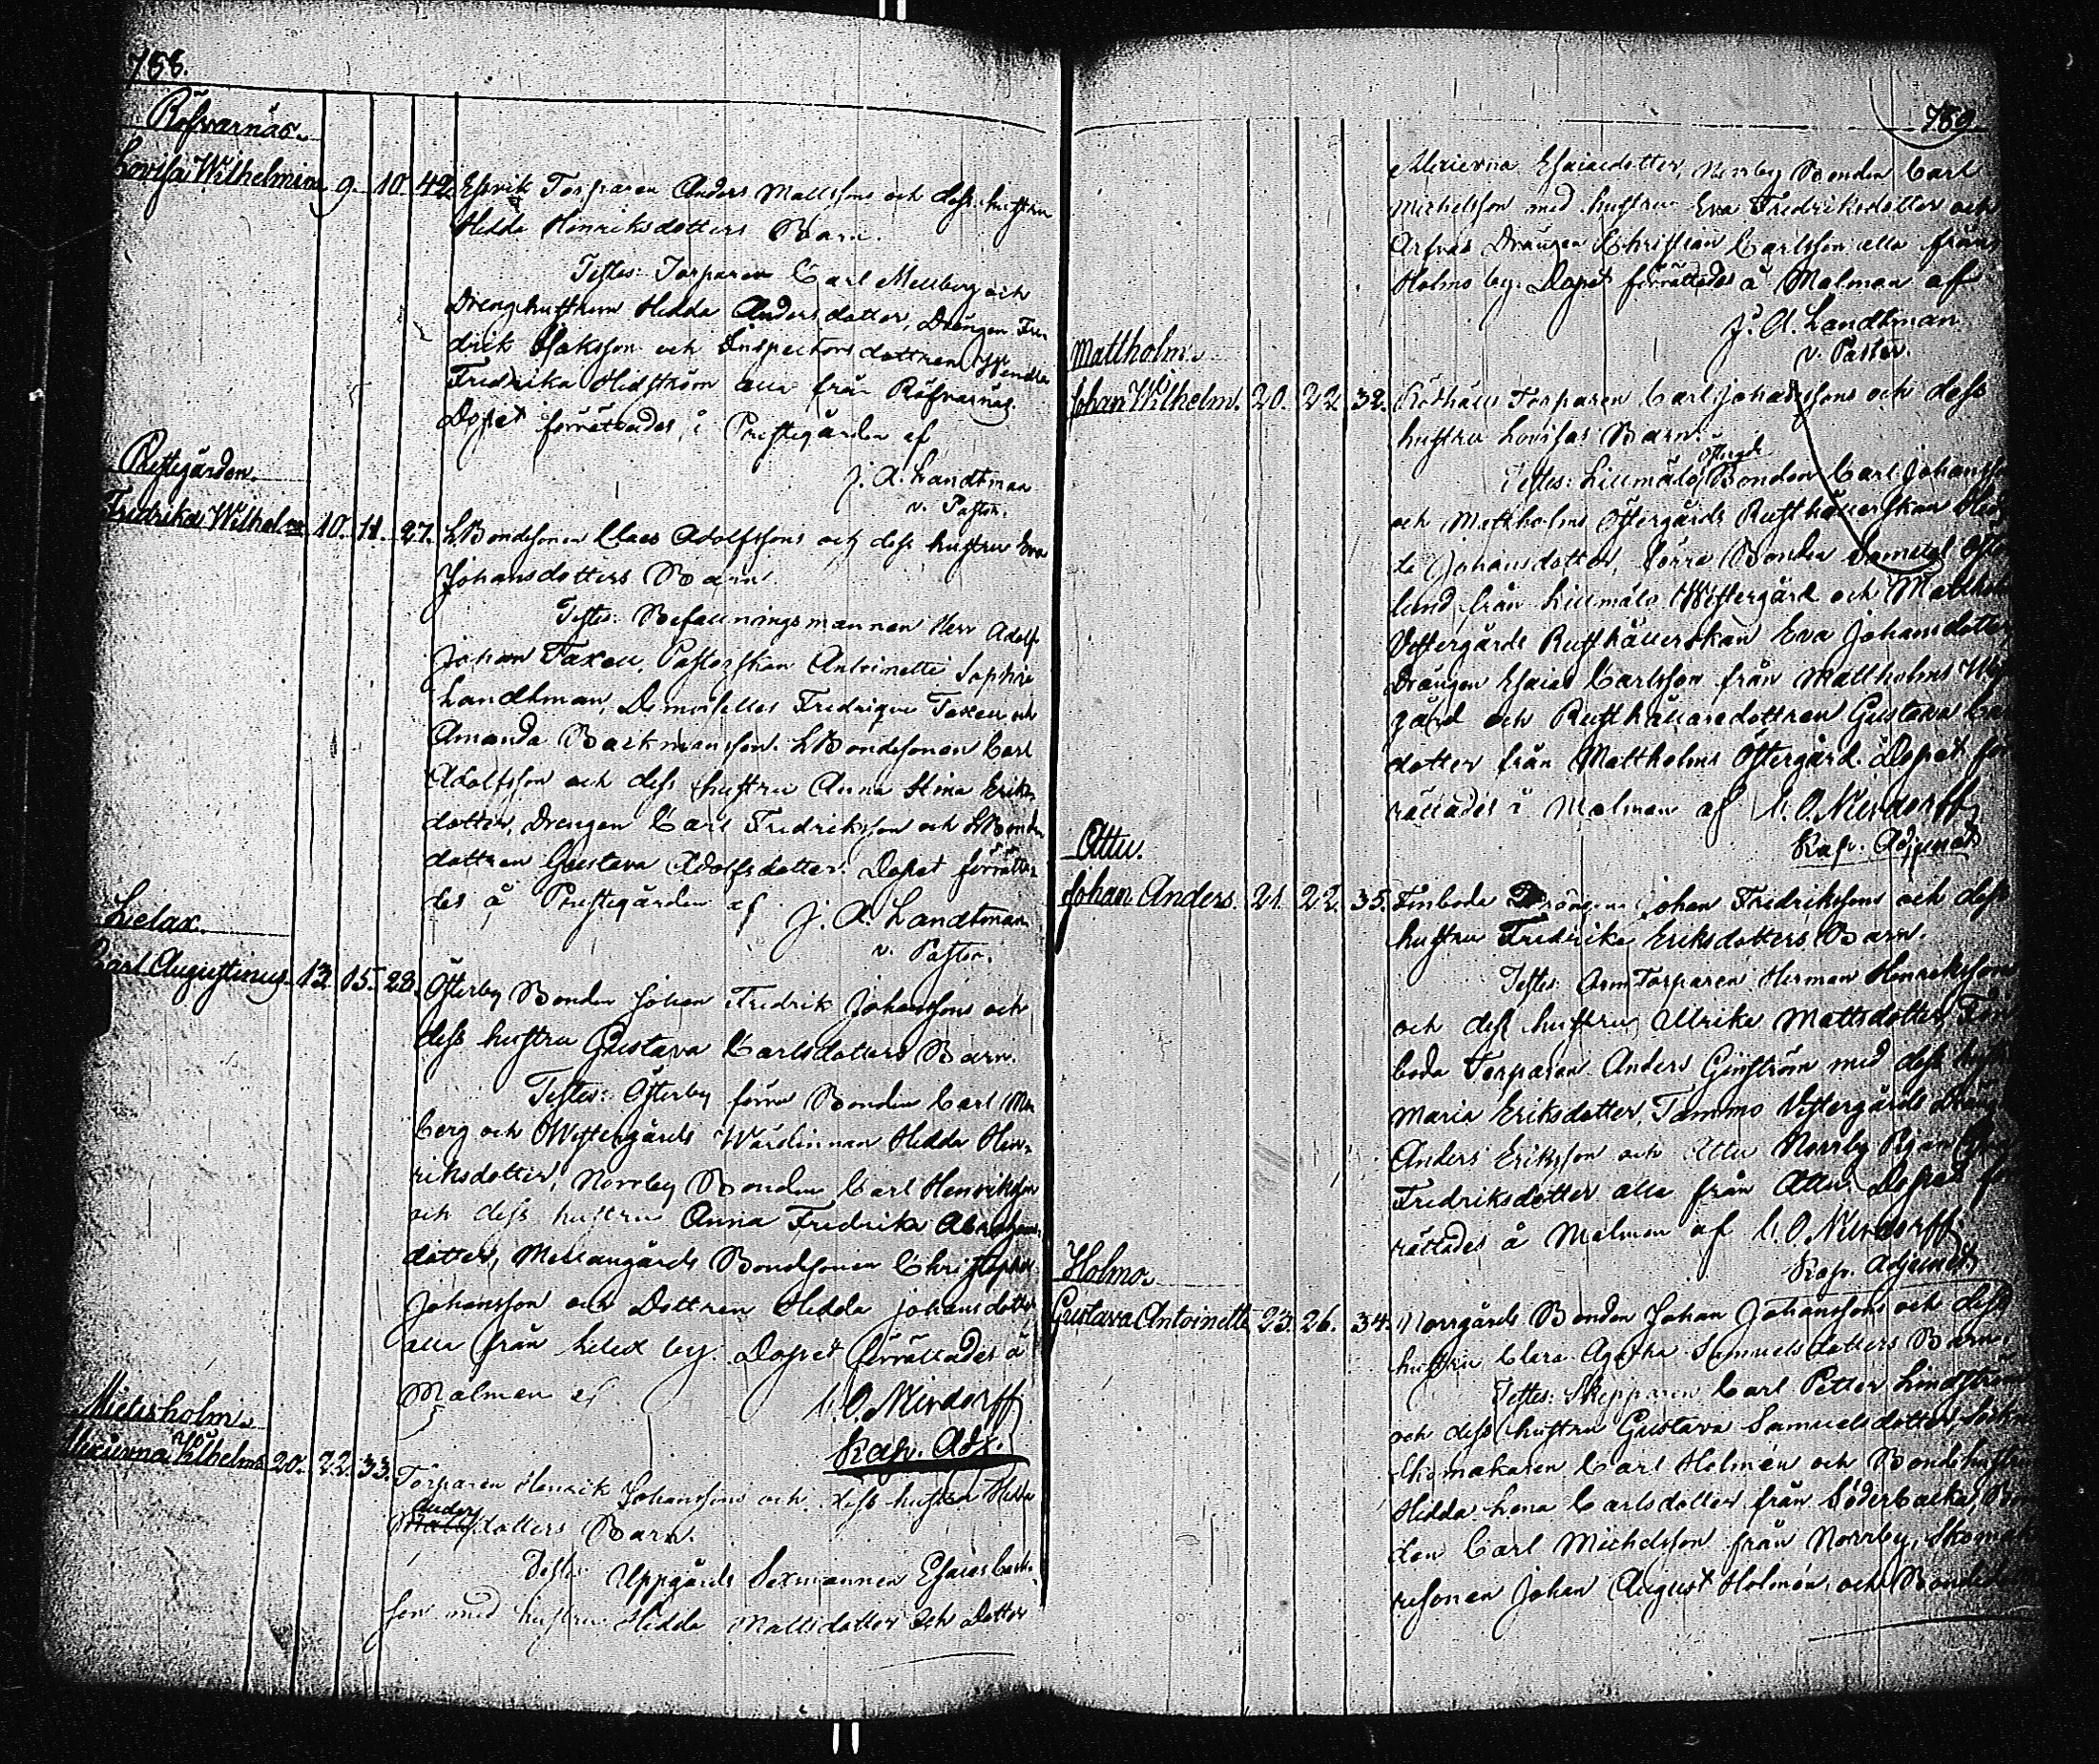 788.
Röfvarnäs.
Lovisa Wilhelmina 9. 10. 42. Torparen Anders Mattssons och dess hustru
Hedda Henriksdotters Barn.
Testes: Torparen Carl Mellberg och
Drenghustrun Hedda Andersdotter, Drängen Fre
drik Isaksson och Inspectorsdottren
Fredrika Hidström alla från Röfvarnäs.
Dopet förrättades i Prestegården af
J. A. Landtman
v. Pastor.
Prestegården.
Fredrika Wilhelmina 10. 11. 27. LBondesonen Claes Adolfssons och dess hustru Eva
Johansdotters Barn.
Testes: Befallningsmannen Herr Adolf
Johan Taxell, Pastorskan Antoinette Sophie
Landtman, Demoiselles Fredrique Taxell och
Amanda Backmansson. LBondesonen Carl
Adolfsson och dess hustru Anna Stina Eriks
dotter, Drengen Carl Fredriksson och LBonde
dottren Gustava Adolfsdotter. Dopet förrätta
des å Prestegården af J. A. Landtman
v. Pastor.
Lielax.
Carl Augustinus 13. 15. 28. Österby Bonden Johan Fredrik Johanssons och
dess hustru Gustava Carlsdotters Barn.
Testes: Österby förra Bonden Carl
berg och Westergårds Wärdinnan Hedda Hen
riksdotter, Norrby Bonden Carl Henriksson
och dess hustru Anna Fredrika Abrahams
dotter, Mellangårds Bondesonen Christopher
Johansson och Dottren Hedda Johansdotter
alla från Lielax by. Dopet förrättades å
Malmen af
Kap. Adj.
Mielisholm.
Wilhelmina 20. 22. 33. Torparen Henrik Johanssons och dess hustru Hedda
Anders
Mattsdotters Barn.
Testes: Uppgårds Sexmannen Esaias Carls
son med hustru Hedda Mattsdotter och Dotter
789.
Esaiaedotter, Norrby Bonden Carl
Michelsson med hustru Eva Fredriksdotter och
Drängen Christian Carlsson alla från
Holmo by. Dopet förrättades å Malmen af
J. A. Landtman
v. Pastor.
Mattholm.
Johan Wilhelm. 20. 22. 32. Torparen Carl Johanssons och dess
hustru Lovisas Barn.
Östergårds
Testes: Lillmälo Bonden Carl Johansson
och Mattholms Östergårds Rusthållerskan Hed
da Johansdotter, förra Bonden Samuel Öster
lund från Lillmälo Westergård och Mattholms
Vestergårds Rusthållerskan Eva Johansdotter
Drängen Esaias Carlsson från Mattholms
gård och Rusthållaredottren Gustava
dotter från Mattholms Östergård. Dopet för
rättades å Malmen af
Kap. Adjunct.
Attu.
Johan Anders. 21. 22. 35. Finboda Drängen Johan Fredrikssons och dess
hustru Fredrika Eriksdotters Barn.
Testes: Torparen Herman Henriksson
och dess hustru Ulrika Mattsdotter, Fin
boda Torparen Anders Ginström med dess hustru
Maria Eriksdotter, Tammo Vestergårds Dräng
Anders Eriksson och Attu Norrby Pigan
Fredriksdotter alla från Attu. Dopet för
rättades å Malmen af
Kap. Adjunct.
Holmo.
Gustava Antoinette 23. 26. 34. Norrgårds Bonden Johan Johanssons och dess
hustru Clara Agatha Samuelsdotters Barn.
Testes: Skepparen Carl Petter Lindström
och dess hustru Gustava Samuelsdotter, Sockne
skomakaren Carl Holmén och Bondehustrun
Hedda Lena Carlsdotter från Söderbacka, Bon
den Carl Michelsson från Norrby, Skomaka
resonen Johan August Holmén, och Bonde